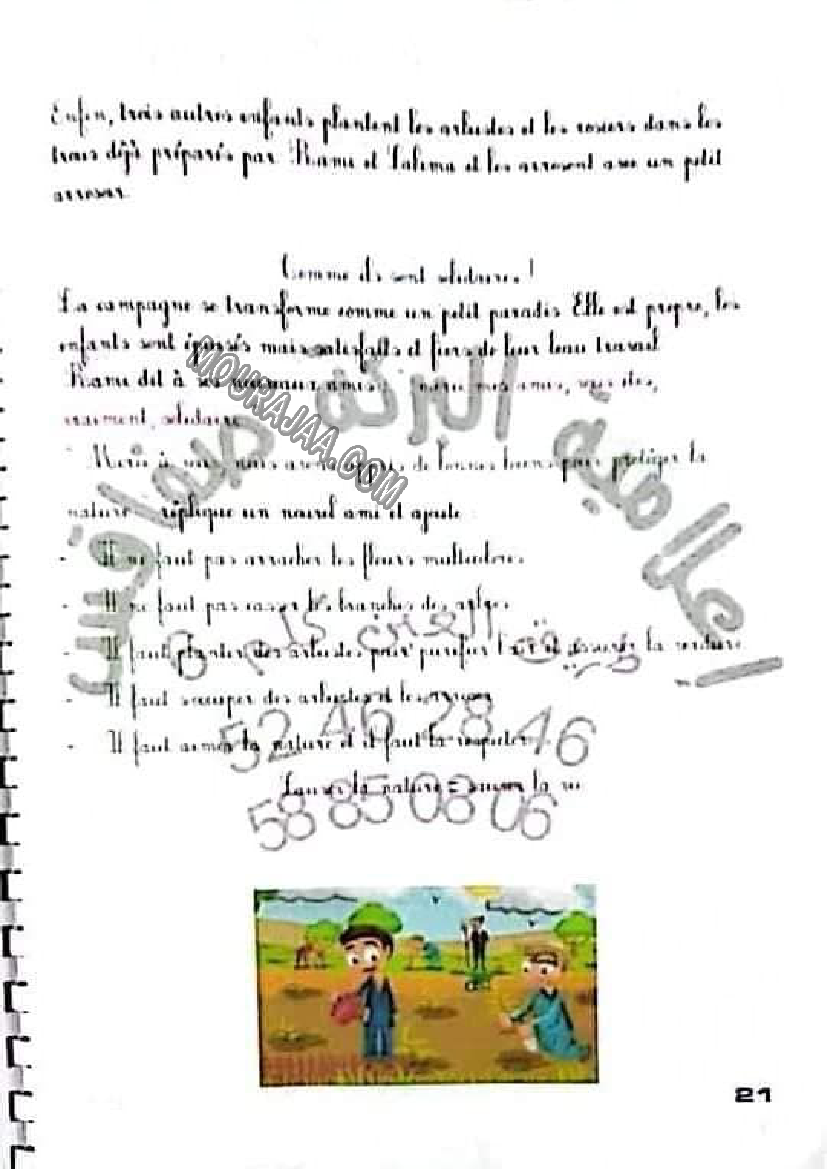 Enfin, trois autres enfants plantent les arbustes et les rosiers dans les
trous déjà préparés par Rami et Salima et les arrosent avec un petit
arrosoir.
Comme ils sont solidaires !
La campagne se transforme comme un petit paradis. Elle est propre, les
enfants sont épuisés mais satisfaits et fiers de leur beau travail.
Rami dit à ses nouveaux amis : " merci mes amis, vous êtes,
vraiment, solidaires
" Merci à vous, nous avons appris de bonnes pour protéger la
nature " réplique un nouvel ami et ajoute :
- Il ne faut pas arracher les fleurs multicolores.
- Il ne faut pas casser les branches des arbres.
- Il faut planter des arbustes pour purifier l'air et assurer la verdure
- Il faut s'occuper des arbustes et les arroser
- Il faut aimer la nature et il faut la respecter
Sauver la nature = sauver la vie
MOURAJAA.COM
علامية البركة صفاقس
طريق العين كلم 6
52 46 28 46
58 85 08 06
21